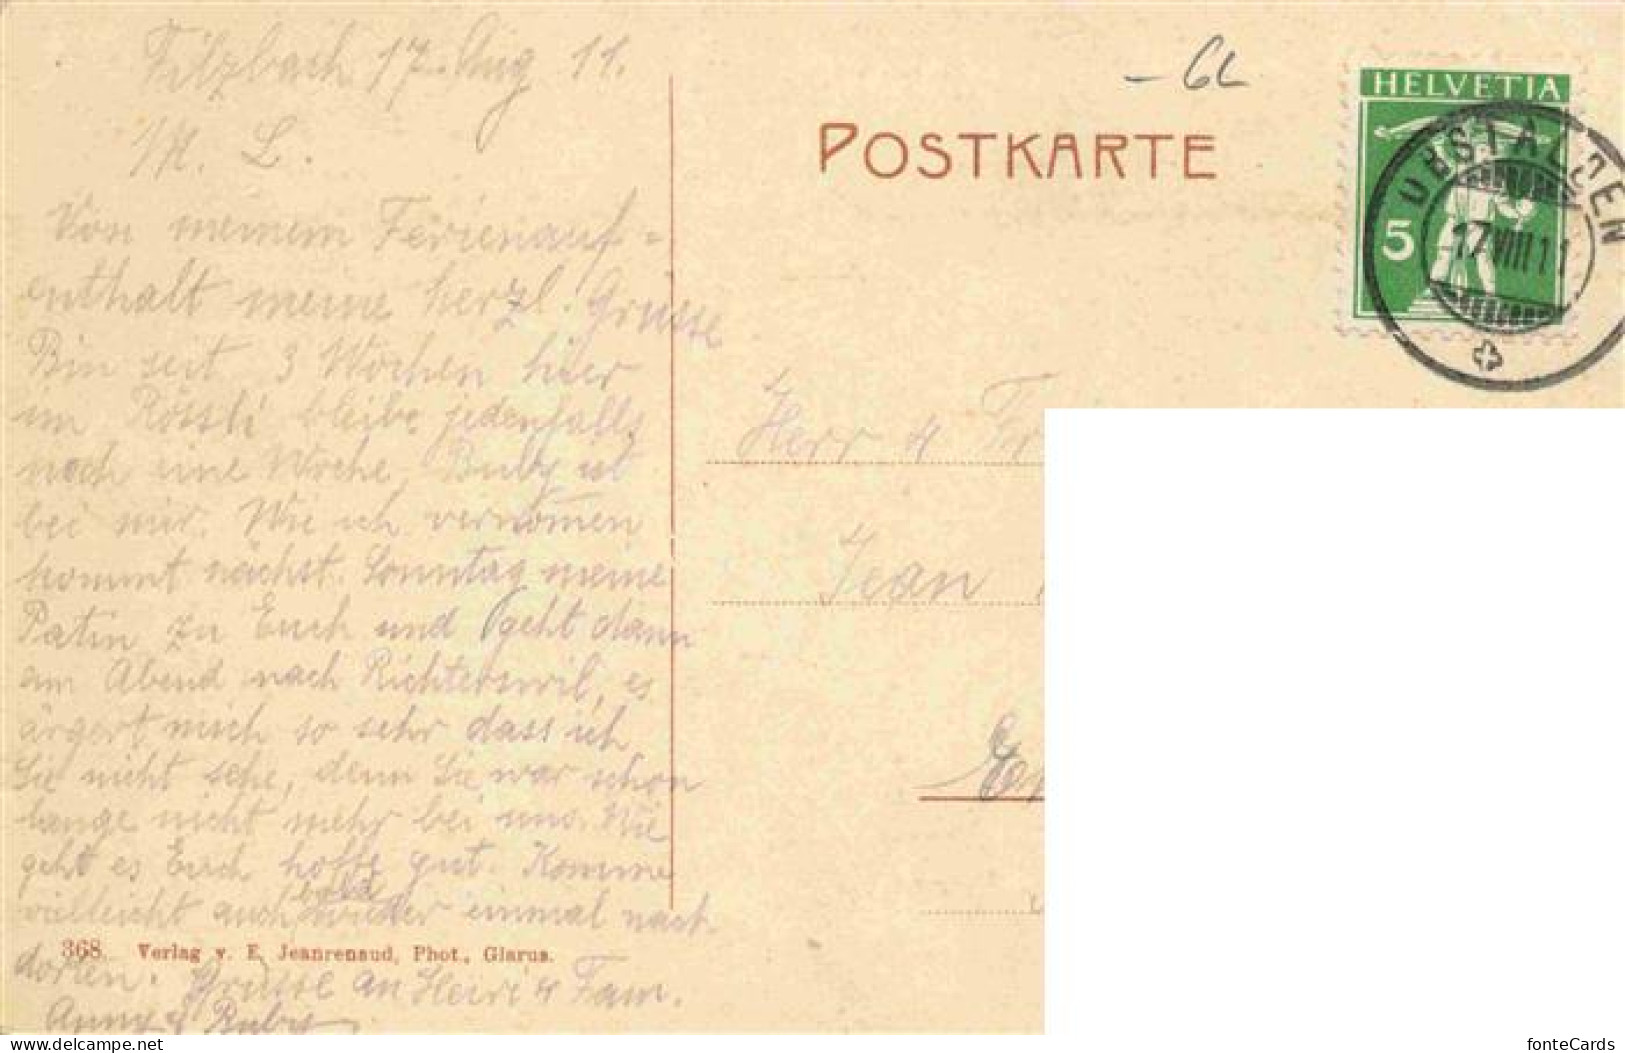 Filzbach 17. Aug 11.
M. L.
Von meinem Ferienauf=
enthalt meine herzl. Grüsse
Bin seit 3 Wochen hier
im Rössli bleibe jedenfalls
noch eine Woche, Buby ist
bei mir. Wie ich vernom̄en
kommt nächst. Sonntag meine
Patin zu Euch und geht dann
am Abend nach Richterswil, es
ärgert mich so sehr dass ich
Sie nicht sehe, denn Sie war schon
lange nicht mehr bei uns. Wie
geht es Euch hoffe gut. Komme
vielleicht auch bald wieder einmal nach
dorten. Grüsse an Heiri & Fam.
Anny & Buby
368. Verlag v. E. Jeanrenaud, Phot., Glarus.
- GL
POSTKARTE
HELVETIA
5
OBSTALDEN
17.VIII.11
Herr & Fr
Jean
www.delcampe.net
fonteCards